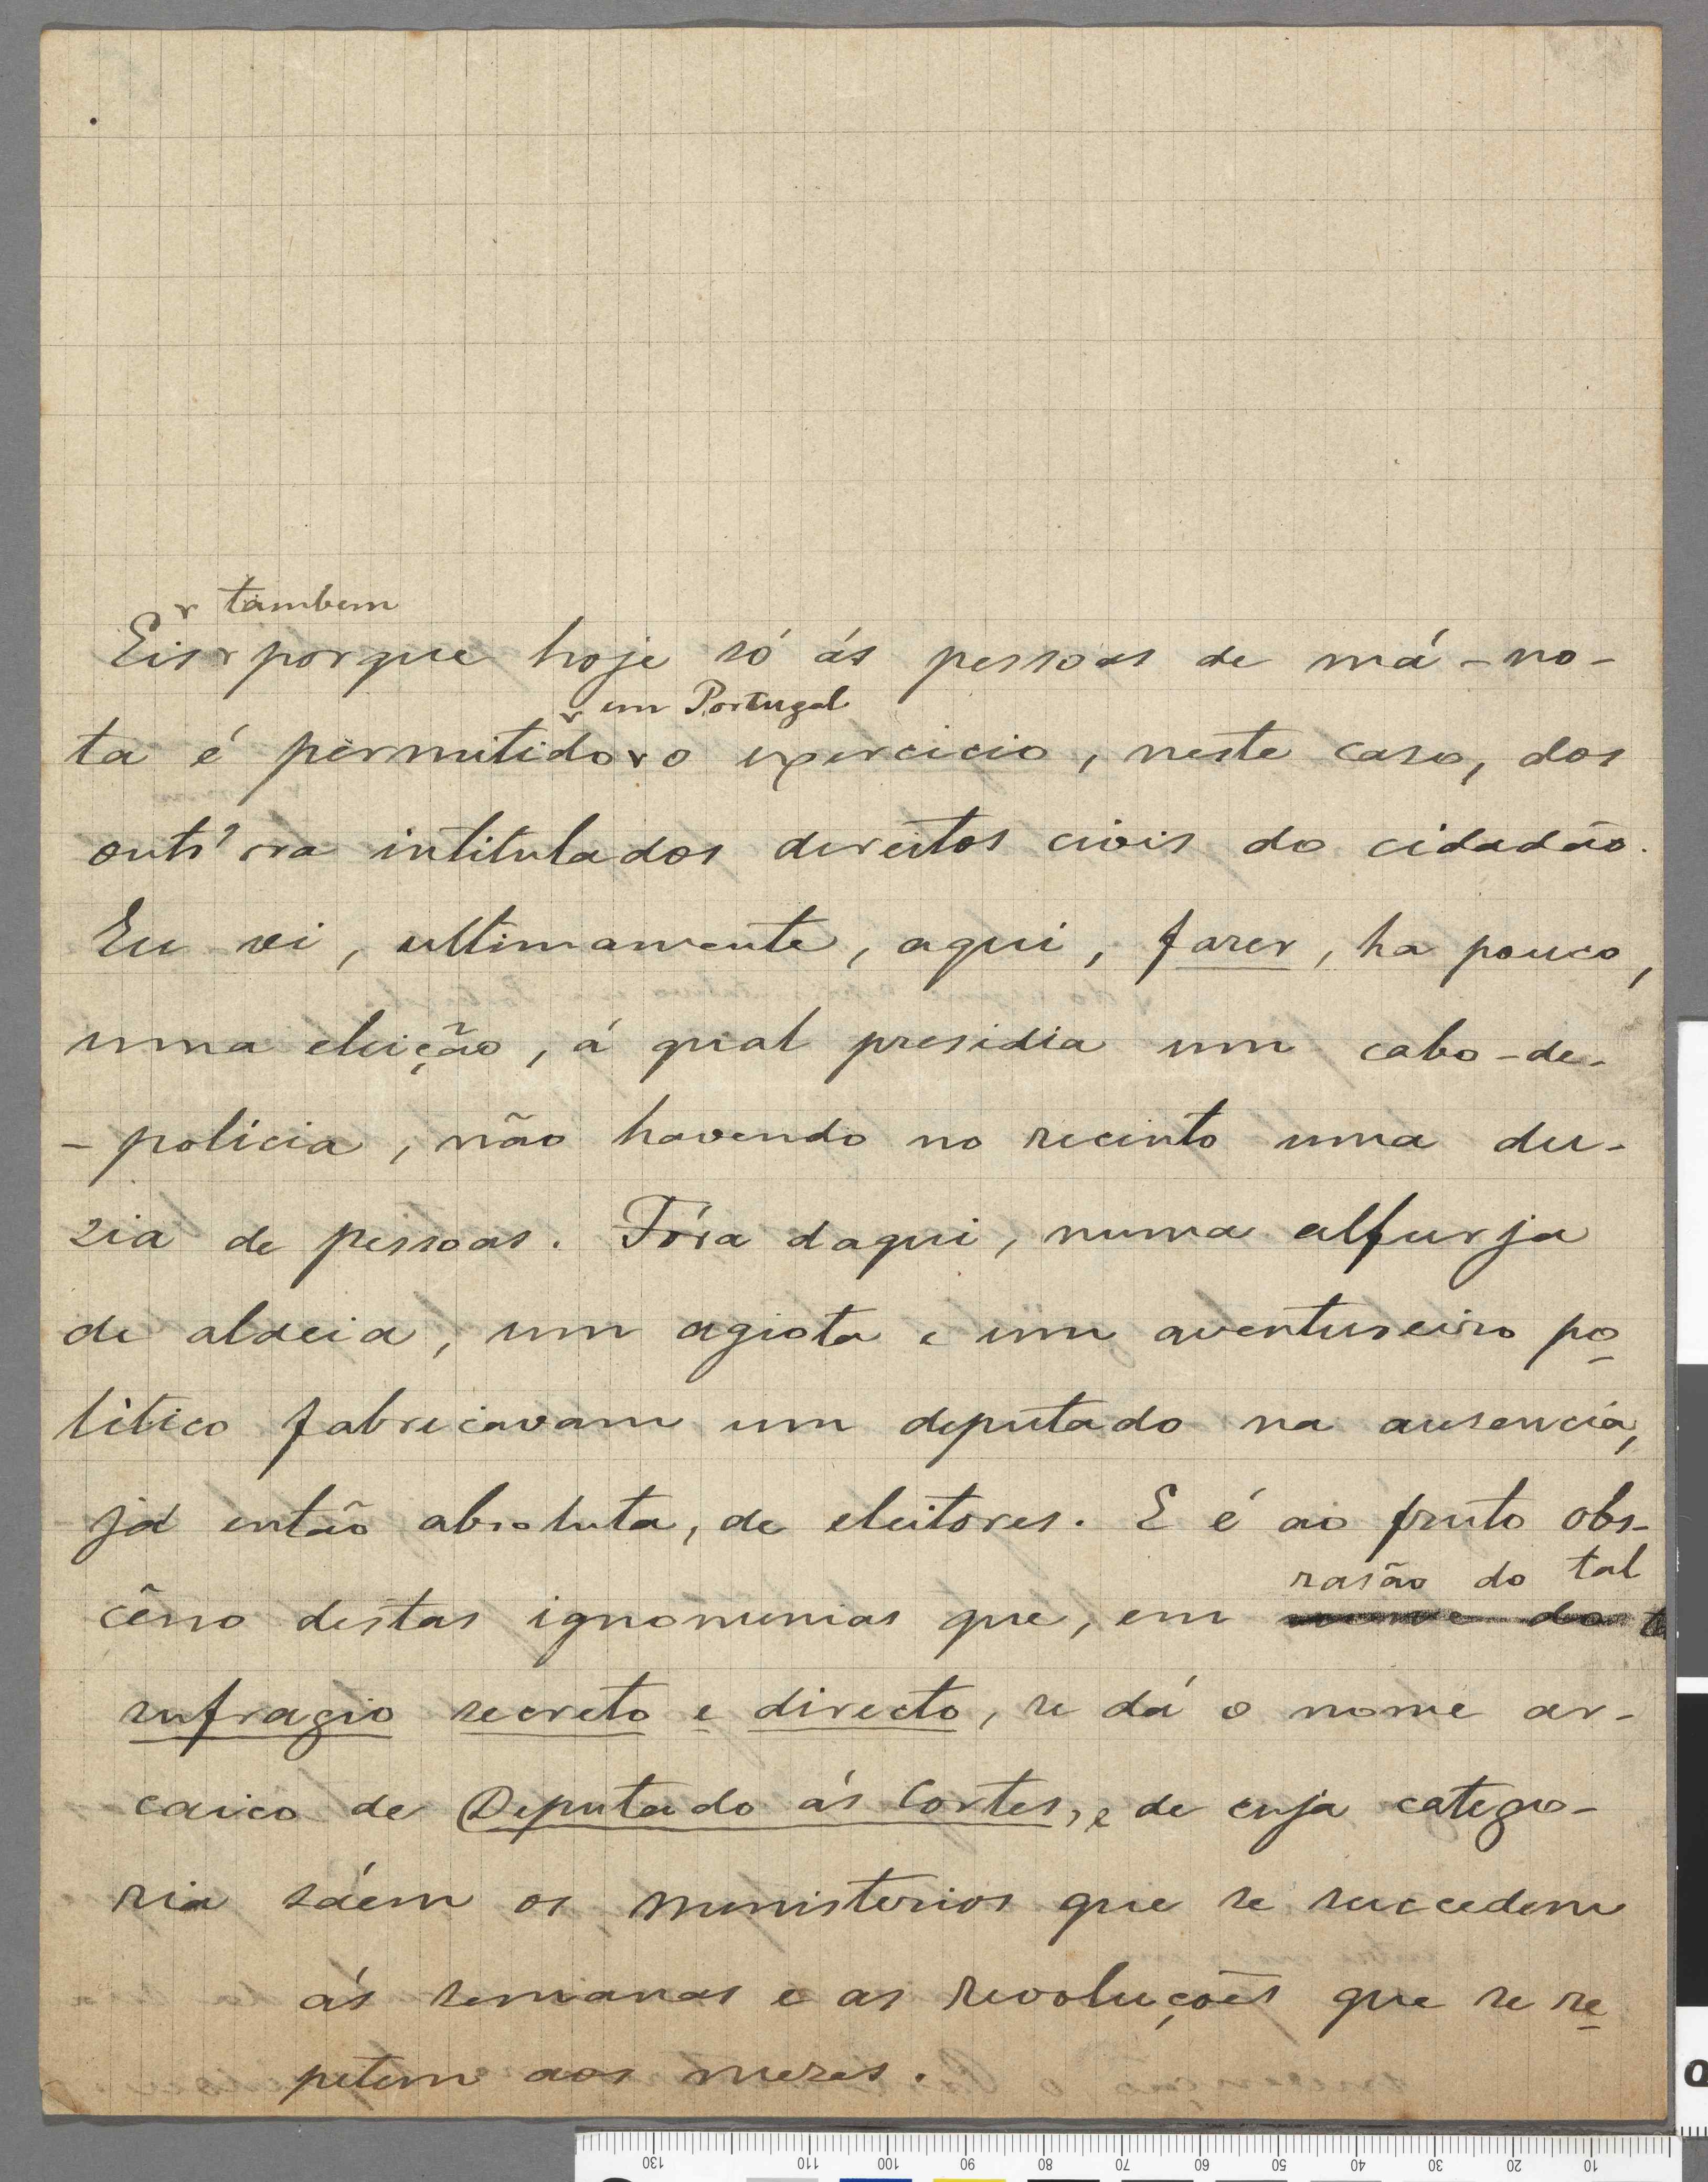 também
Eis porque hoje só ás pessoas de má-no-
em Portugal
ta é permitido o exercicio, neste caso, dos
outr'ora intitulados direitos civis do cidadão.
Eu vi, ultimamente, aqui, fazer, ha pouco,
uma eleição, á qual presidia um cabo-de-
-policia, não havendo no recinto uma du-
zia de pessoas. Fóra daqui, numa alfurja
de aldeia, um agiota e um aventureiro po
litico fabricavam um deputado na ausencia,
já então absoluta, de eleitores. E é ao fruto obs-
rasão do tal
cêno destas ignominias que, em
sufragio secreto e directo, se dá o nome ar-
caico de Deputado ás Cortes, e de cuja catego-
ria sáem os ministerios que se succedem
ás semanas e as revoluções que se re
petem aos mezes.
130 110 100 90 80 70 60 50 40 30 20 10